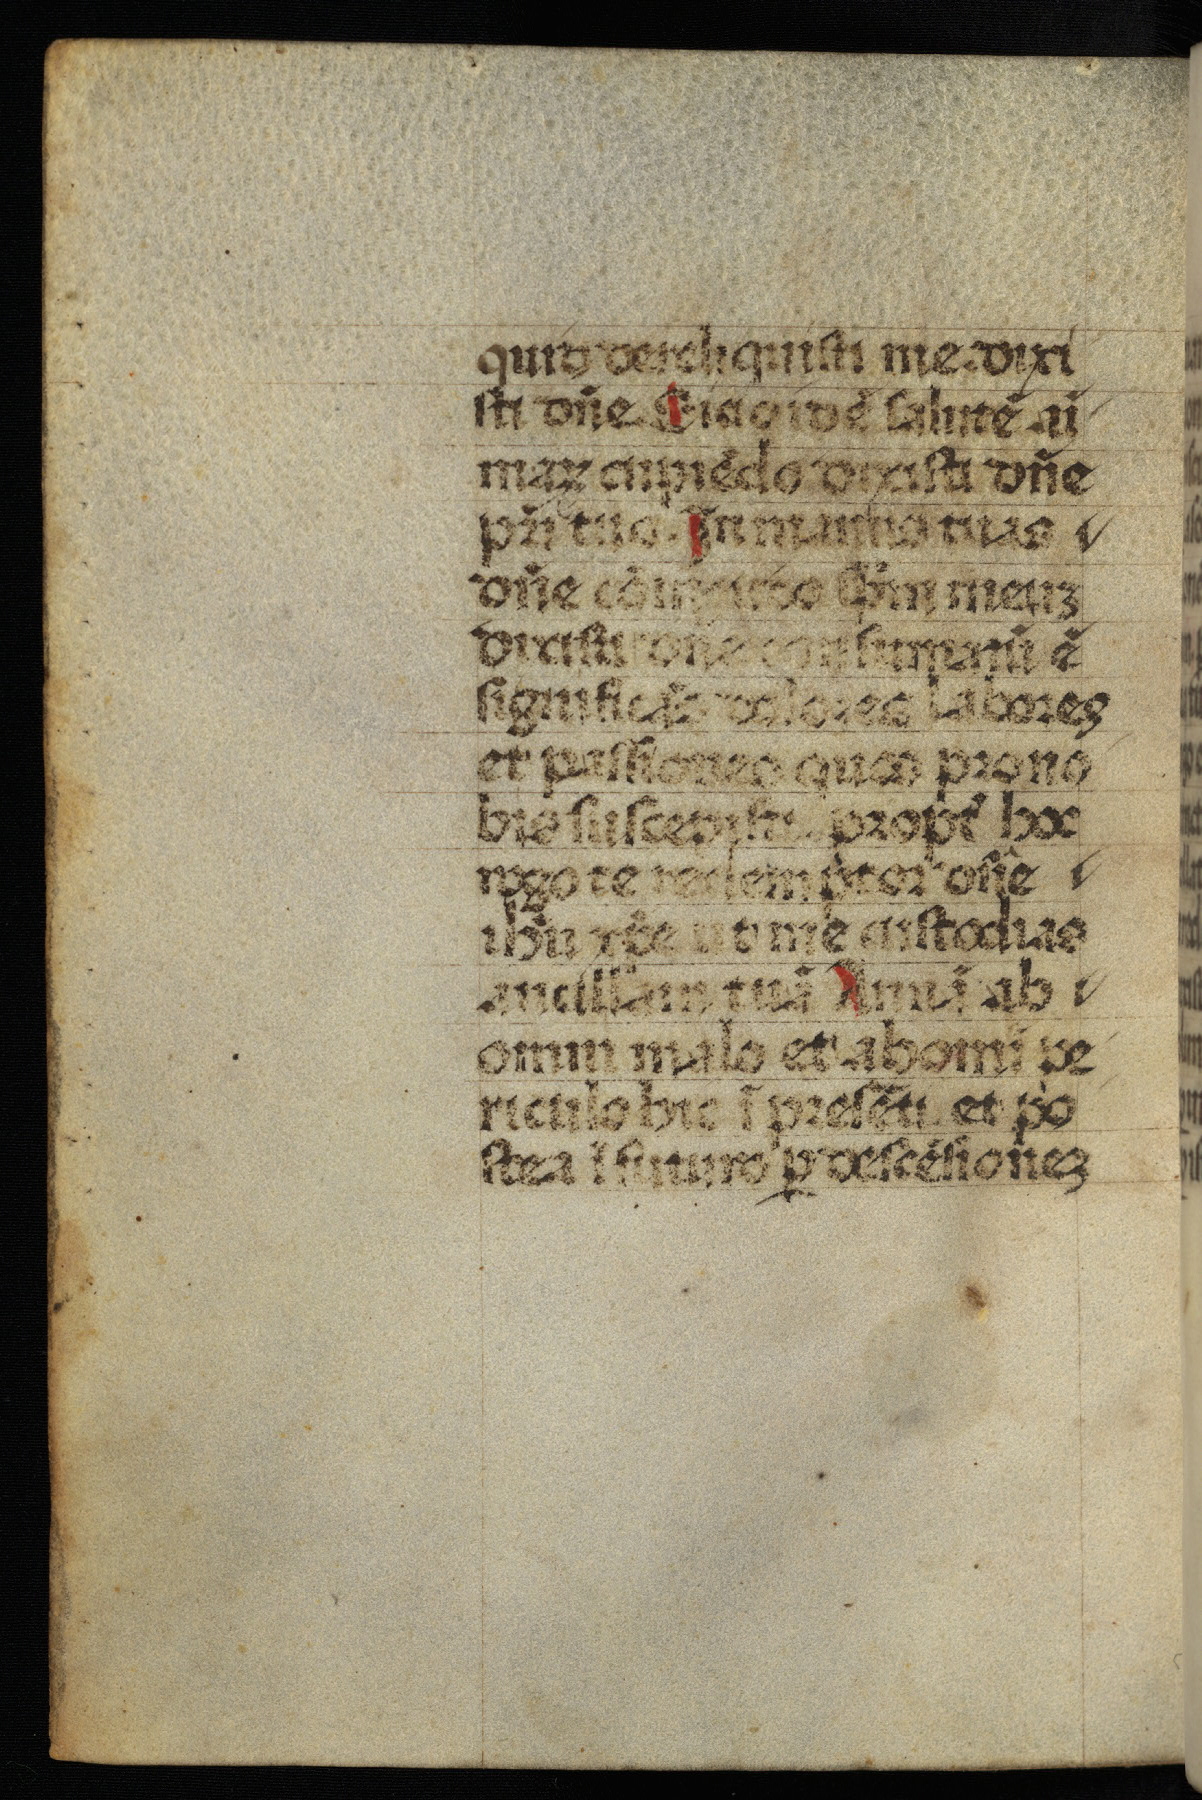 quid dereliquisti me. dixi
sti dn̄e. Sicio idē salutē ai̅
maꝝ cupiēdo dixisti dn̄e
pr̄i tuo. In manus tuas
dn̄e cōmendo sp̄m meuꝫ
dixisti dn̄e consumatū ē
significās dolores labores
et passiones quas pro no
bis suscepisti. propt̄ hoc
rogo te redemptor dn̄e
ihū xp̄e ut me custodias
ancillam tuā Annā ab
omni malo et ab omī pe
riculo hic ī presēti. et po
stea ī futuro ꝑ descēsioneꝫ